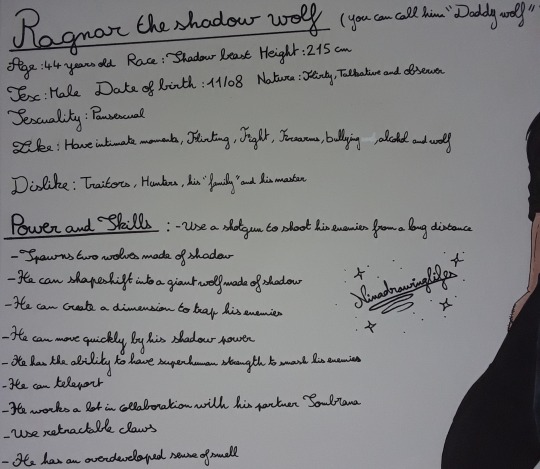 Ragnar the shadow wolf (you can call him "Daddy wolf"
Age : 44 years old Race : Shadow beast Height : 215 cm
Sexe : Male Date of birth : 11/08 Nature : Flirty, Talkative and observer
Sexuality : Pansexual
Like : Have intimate moments, Flirting, Fight, Firearms, bullying, alcohol and wolf
Dislike : Traitors, Hunters, his "family" and his master
Power and Skills : - Use a shotgun to shoot his enemies from a long distance
- Spawns two wolves made of shadow
- He can shapeshift into a giant wolf made of shadow
- He can create a dimension to trap his enemies
- He can move quickly by his shadow power
- He has the ability to have superhuman strength to smash his enemies
- He can teleport
- He works a lot in collaboration with his partner Sombrana
- Use retractable claws
- He has an overdeveloped sense of smell
Ninadrawinglifes